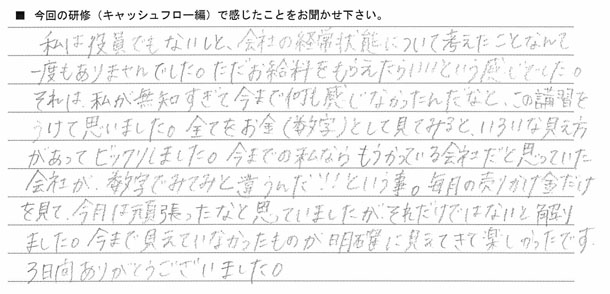 ■ 今回の研修（キャッシュフロー編）で感じたことをお聞かせ下さい。
私は役員でもないしと、会社の経常状態について考えたことなんて
一度もありませんでした。ただお給料をもらえたらいいという感じでした。
それは、私が無知すぎて今まで何も感じなかったんだなと、この講習を
うけて思いました。全てをお金(数字)として見てみると、いろいろな見え方
があってビックリしました。今までの私ならもうかっている会社だと思っていた
会社が、数字でみてみと違うんだ!!という事。毎月の売りかけ金だけ
を見て、今月は頑張ったなと思っていましたが、それだけではないと解り
ました。今まで見えていなかったものが明確に見えてきて楽しかったです。
3日間ありがとうございました。